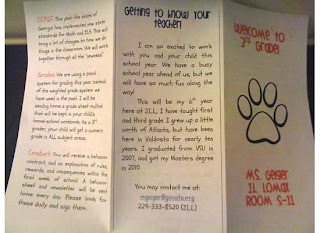 CCPGS: This year the state of
Georgia has implemented new state
standards for Math and ELA. This will
bring a lot of changes to how we do
things in the classroom. We will work
together through all the "newness."
Grades: We are using a point
system for grading this year instead of
the weighted grade system we
have used in the past. I will be
sending home a grade sheet
that will be kept in your child's
home-school notebook. As a 3rd
grader, your child will get a numeric
grade in ALL subject areas.
Conduct: You will receive a behavior
contract, and an explanation of rules,
rewards, and consequences within the
first week of school. A behavior
sheet and newsletter will be sent
home every day. Please look for
these daily and sign them.
Getting to know your
teacher!
I am so excited to work
with you and your child this
school year. We have a busy
school year ahead of us, but we
will have so much fun along the
way!
This will be my 6th year
here at JLL, I have taught first
and third grade. I grew up a little
north of Atlanta, but have been
here in Valdosta for nearly ten
years. I graduated from VSU in
2007, and got my Masters degree
in 2010.
You may contact me at:
229-333-8520 (JLL)
Welcome to
3rd Grade!
Ms. Geiger
JL Lomax
Room S-11